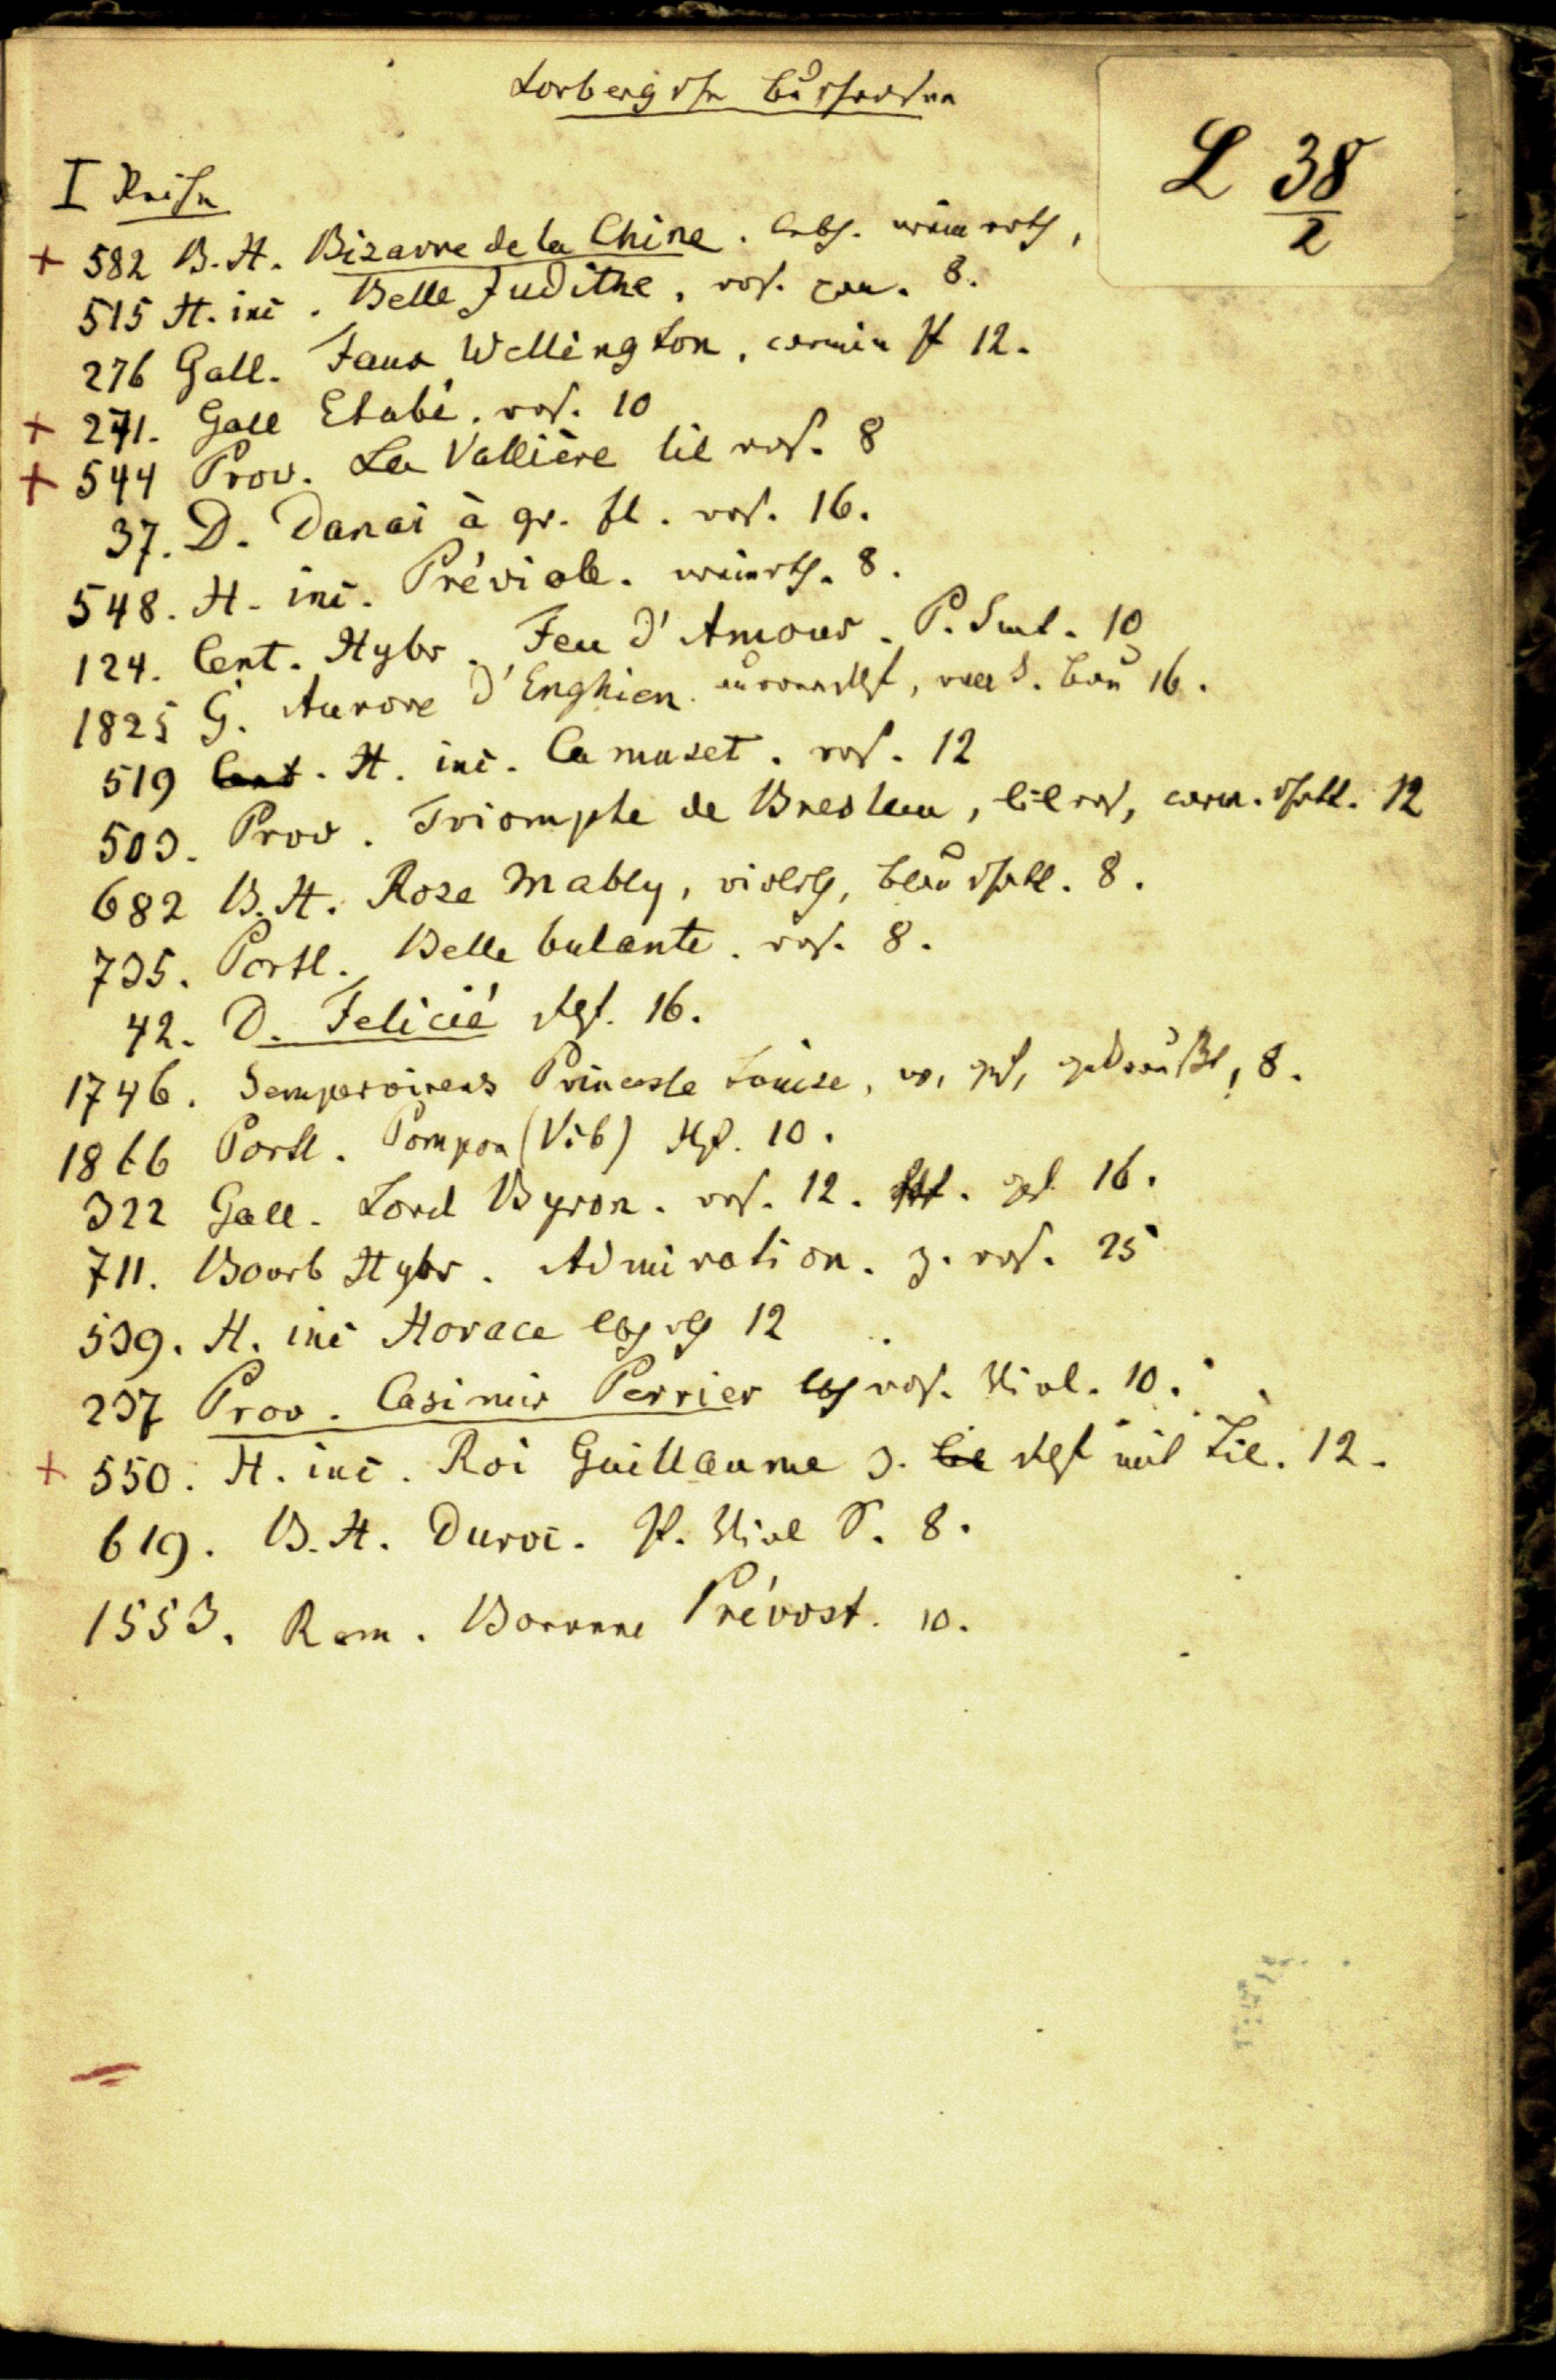 Lorbergsche Buschrosen
L 38/2
I Reihe
+ 582 B. H. Bizarre de la Chine. lebh. weinroth,
515 H. inc. Belle Judithe. ros. 8.
276 Gall. Faux Wellington, carmin Pf 12.
+ 271. Gall Etabé. ros. 10
+ 544 Prov. La Vallière lil ros. 8
37. D. Danai à gr. fl. ros. 16.
548. H. inc. Préviole. weinrth. 8.
124. Cent. Hybr. Feu d'Amour. P. 10
1825 G. Aurore d'Enghien. Bau 16.
519 Cent. H. inc. Camuset. ros. 12
503. Prov. Triomphe de Breslau, lil ros, carm. schatt. 12
682 B. H. Rose Mably, violth, blau schatt. 8.
735. Portl. Belle bulante. ros. 8.
42. D. Felicié flschf. 16.
1746. Sempervirens Princesse Louise, w, gef, gedrungt, 8.
1866 Portl. Pompon (Vib) 10.
322 Gall. Lord Byron. ros. 12. gef 16.
711. Bourb Hybr. Admiration. z. ros. 25
539. H. inc Horace 12
237 Prov. Casimir Perrier ros. Viol. 10.
+ 550. H. inc. Roi Guillaume z. lil mit Lil. 12.
619. B. H. Duroc. Pf. Viol S. 8.
1553. Rem. Baronne Prévost. 10.